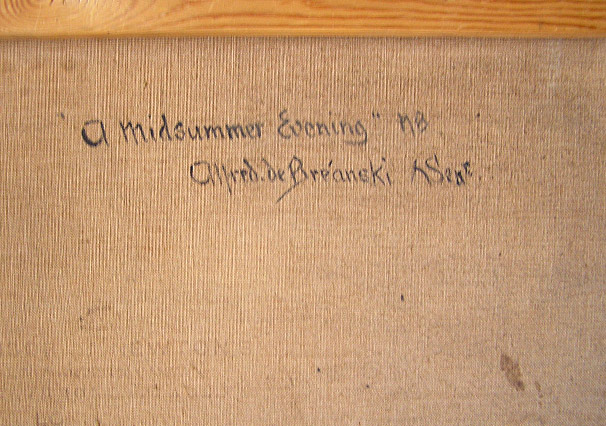 "A Midsummer Evening" NB
Alfred. de Bréanski Senr.